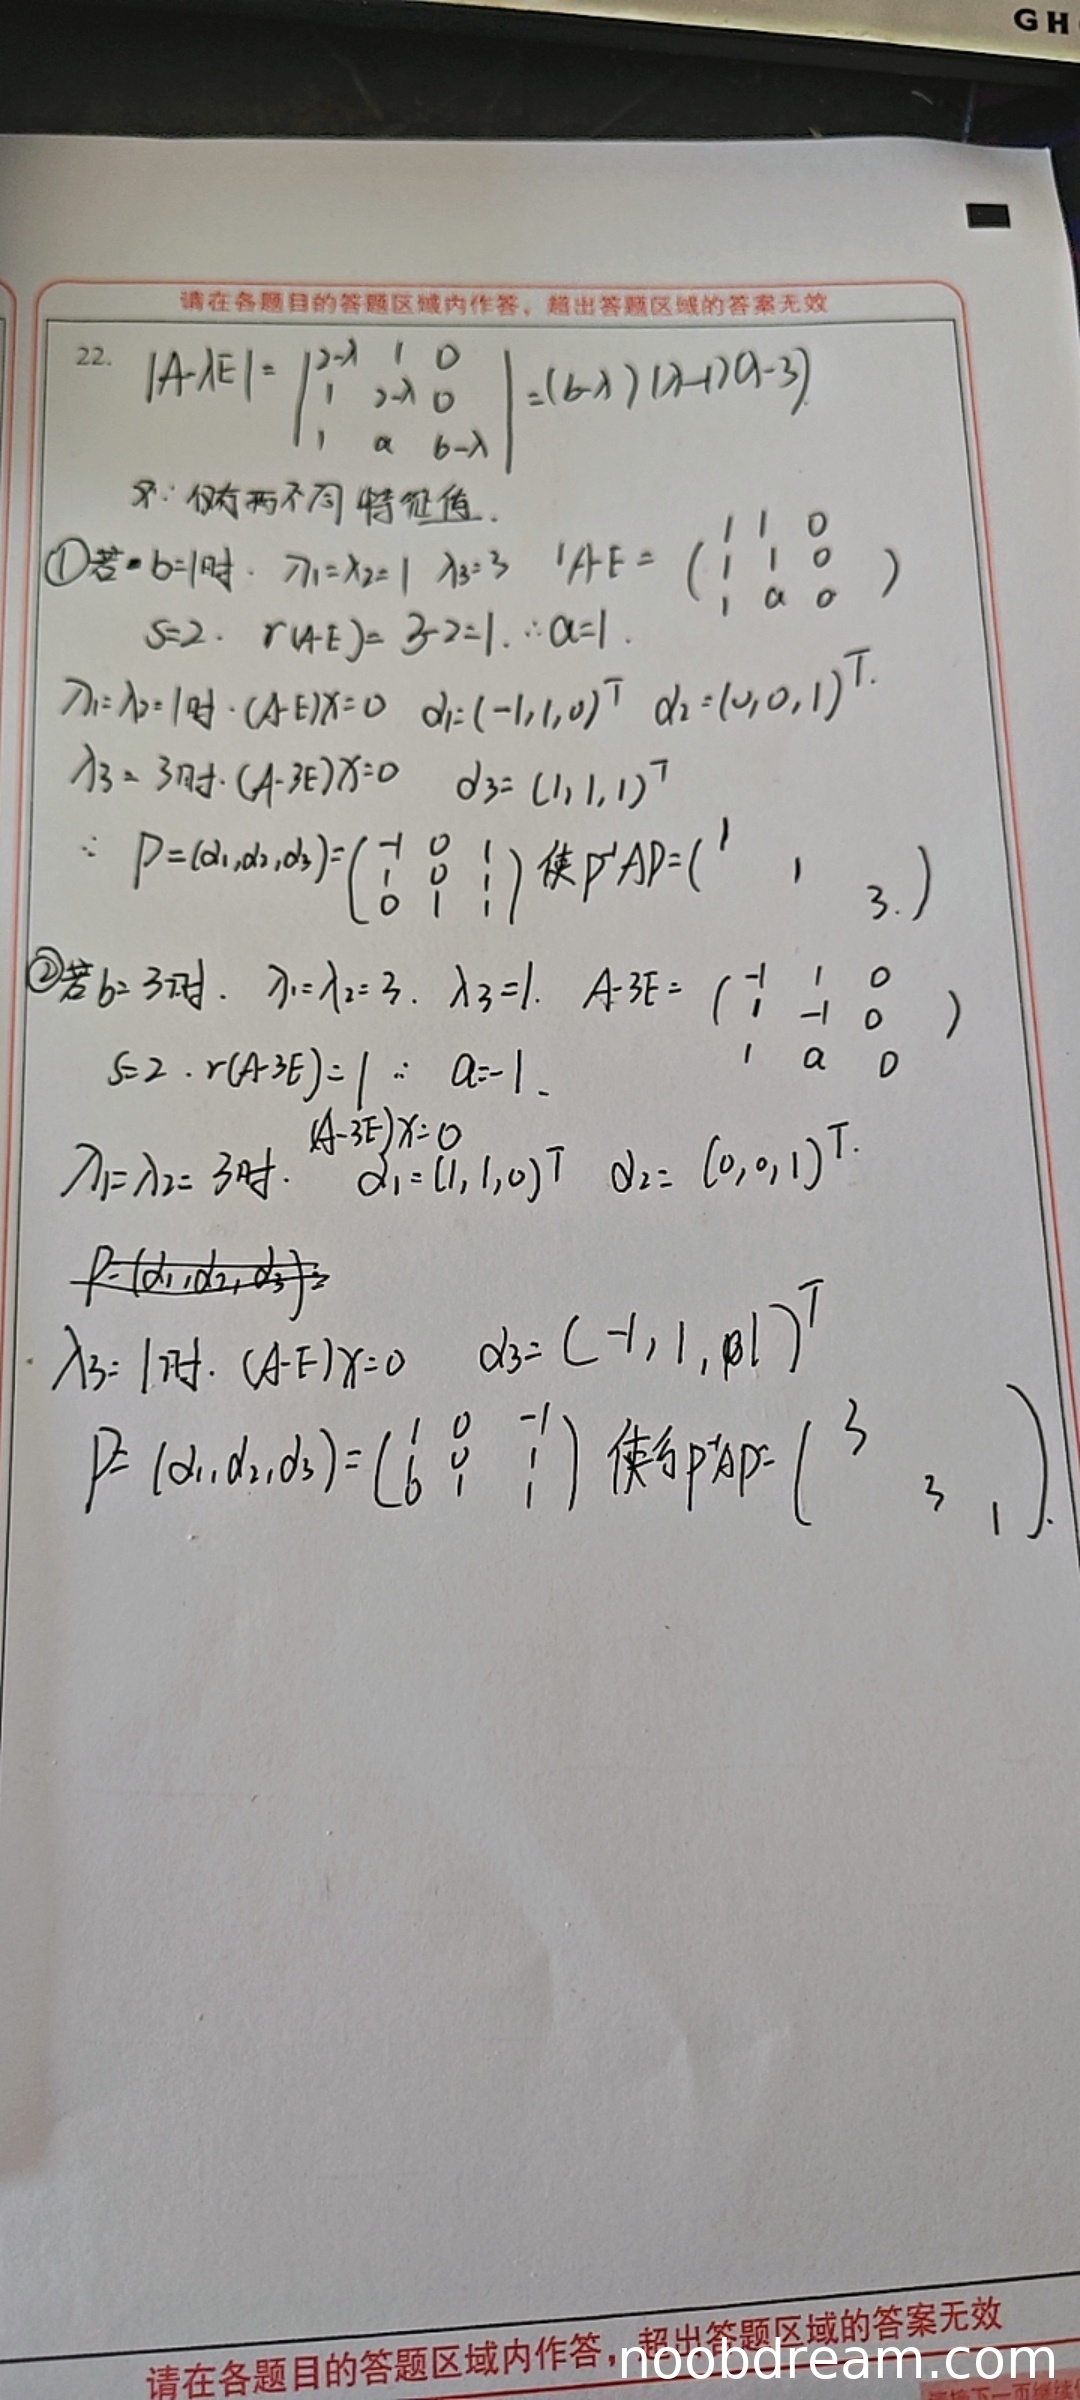 GH
请在各题目的答题区域内作答，超出答题区域的答案无效
22. |A-λE| = |2-λ 1 0
1 2-λ 0
1 a b-λ| =(b-λ)(λ-1)(λ-3).
又∵仅有两不同特征值.
①若 b=1时. λ1=λ2=1 λ3=3 A-E = (1 1 0
1 1 0
1 a 0)
S=2. r(A-E)= 3-2=1. ∴a=1.
λ1=λ2=1时.(A-E)x=0 α1=(-1,1,0)^T α2=(0,0,1)^T.
λ3=3时.(A-3E)x=0 α3=(1,1,1)^T
∴ P=(α1,α2,α3)=(-1 0 1
1 0 1
0 1 1) 使P^-1AP=(1
1
3.)
②若b=3时. λ1=λ2=3. λ3=1. A-3E= (-1 1 0
1 -1 0
1 a 0)
S=2. r(A-3E)=1 ∴ a=-1.
(A-3E)x=0
λ1=λ2=3时. α1=(1,1,0)^T α2=(0,0,1)^T.
P=(α1,α2,α3)=
λ3=1时. (A-E)x=0 α3=(-1,1,1)^T
P=(α1,α2,α3)=(1 0 -1
1 0 1
0 1 1) 使得P^-1AP=(3
3
1).
请在各题目的答题区域内作答，超出答题区域的答案无效
noobdream.com